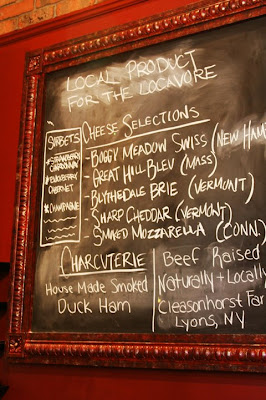 LOCAL PRODUCT
FOR THE LOCAVORE
SORBETS
STRAWBERRY
CHARDONNAY
CABERNET
CHAMPAGNE
CHEESE SELECTIONS
- BOGGY MEADOW SWISS (NEW HAM
- GREAT HILL BLEU (MASS)
- BLYTHEDALE BRIE (VERMONT)
- SHARP CHEDDAR (VERMONT)
- SMOKED MOZZARELLA (CONN.)
CHARCUTERIE
House Made Smoked
Duck Ham
Beef Raised
Naturally + Locally
Cleasonhorst Far
Lyons, NY